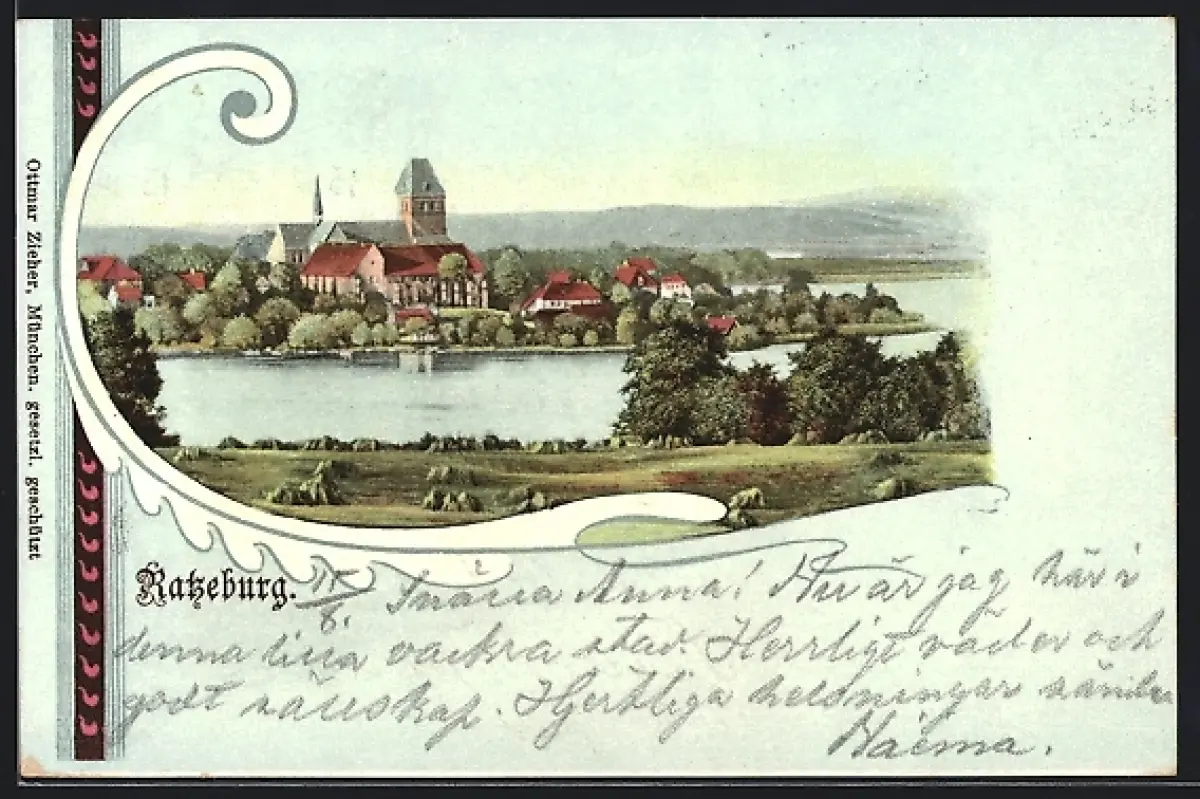 Ottmar Zieher, München. gesetzl. geschützt
Ratzeburg.
11/8. Snälla Anna! Nu är jag här i
denna lilla vackra stad. Herrligt väder och
godt sällskap. Hjertliga helsningar sänder
Naëma.